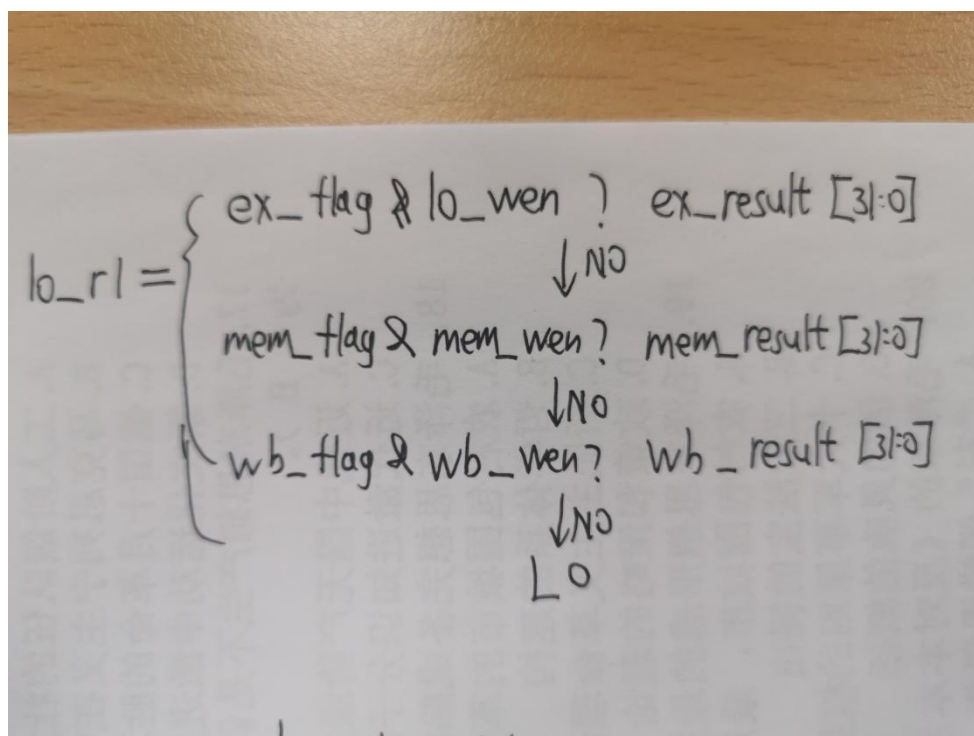 ex_flag & lo_wen ? ex_result [31:0]
↓ NO
lo_rl =
mem_flag & mem_wen ? mem_result [31:0]
↓ NO
wb_flag & wb_wen ? wb_result [31:0]
↓ NO
LO